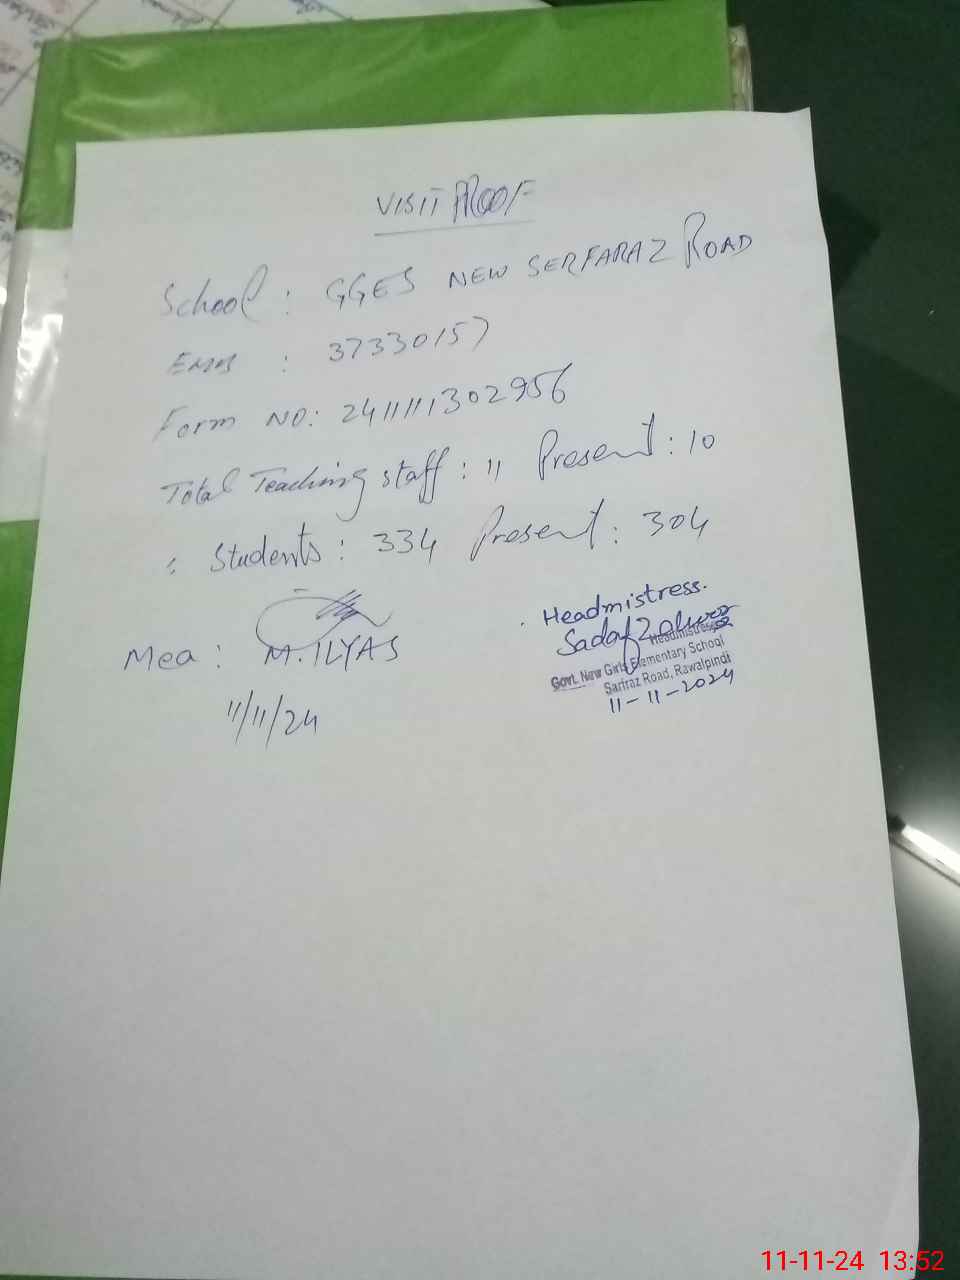 VISIT PROOF
School : GGES NEW SERFARAZ ROAD
EMIS : 37330157
Form NO: 241111302956
Total Teaching staff : 11 Present : 10
" Students : 334 Present : 304
Mea : M. ILYAS
11/11/24
Headmistress.
Sadaf Zahra
Headmistress
Govt. New Girls Elementary School
Sarfraz Road, Rawalpindi
11-11-2024
11-11-24 13:52